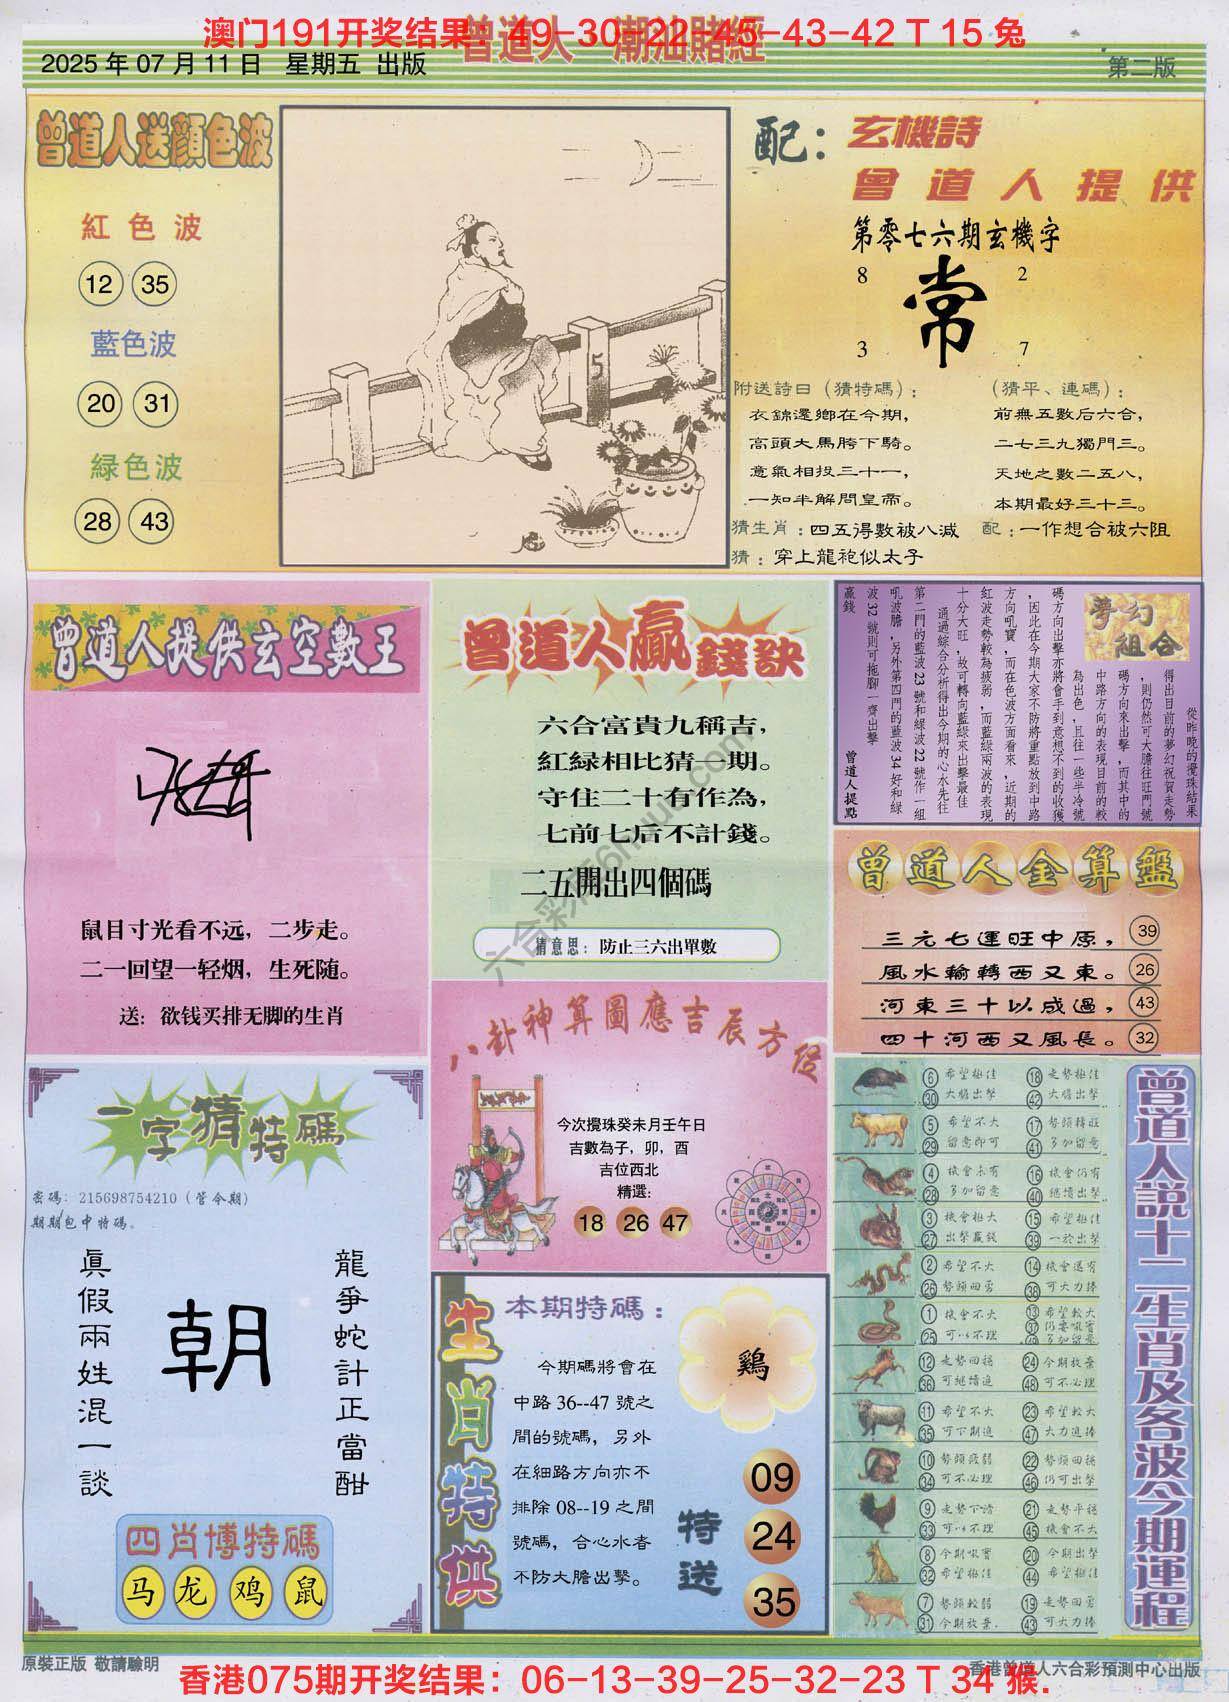 澳门191开奖结果：49-30-22-45-43-42 T 15 兔
曾道人 潮汕賭經
2025 年 07 月 11 日 星期五 出版
第二版
曾道人送顔色波
紅色波
12 35
藍色波
20 31
緑色波
28 43
5
配：玄機詩
曾道人提供
第零七六期玄機字
8 2
常
3 7
附送詩曰（猜特碼）：
衣錦還鄉在今期，
高頭大馬胯下騎。
意氣相投三十一，
一知半解問皇帝。
（猜平、連碼）：
前無五數后六合，
二七三九獨門三。
天地之數二五八，
本期最好三十三。
猜生肖：四五得數被八減
配：一作想合被六阻
猜：穿上龍袍似太子
曾道人提供玄空數王
鼠目寸光看不远，二步走。
二一回望一轻烟，生死随。
送：欲钱买排无脚的生肖
曾道人贏錢訣
六合富貴九稱吉，
紅緑相比猜一期。
守住二十有作為，
七前七后不計錢。
二五開出四個碼
猜意思：防止三六出單數
夢幻組合
從昨晚的攪珠結果
得出目前的夢幻祝賀走勢
，則仍然可大膽往旺門號
碼方向來出擊，而其中的
中路方向的表現目前的較
為出色，且往一些半冷號
碼方向出擊亦將會手到意想不到的收獲
，因此在今期大家不防將重點放到中路
方向吼寶，而在色波方面看來，近期的
紅波走勢較為疲弱，而藍綠兩波的表現
十分大旺，故可轉向藍綠來出擊最佳
通過綜合分析得出今期的心水先往
第二門的藍波 23 號和綠波 22 號作一組
吼波膽，另外第四門的藍波 34 好和綠
波 32 號則可拖腳一齊出擊
贏錢
曾道人提點
曾道人金算盤
三元七運旺中原， 39
風水輸轉西又東。 26
河東三十以成過， 43
四十河西又風長。 32
八卦神算圖應吉辰方位
今次攪珠癸未月壬午日
吉數為子，卯，酉
吉位西北
精選:
18 26 47
一字猜特碼
密碼: 215698754210 (管今期)
期期包中特碼。
眞假兩姓混一談
朝
龍爭蛇計正當酣
四肖博特碼
马 龙 鸡 鼠
生肖特供
本期特碼：
鷄
今期碼將會在
中路 36--47 號之
間的號碼，另外
在細路方向亦不
排除 08--19 之間
號碼，合心水者
不防大膽出擊。
特送
09
24
35
曾道人説十二生肖及各波今期運程
6 希望極佳 18 走勢極佳
30 大膽出擊 42 大膽出擊
5 希望不大 17 勢頭轉旺
29 留意即可 41 多加留意
4 機會未有 16 機會仍有
28 多加留意 40 繼續出擊
3 機會極大 15 希望極佳
27 出擊贏錢 39 一於出擊
2 希望不大 14 機會還有
26 勢頭回勇 38 可大力捧
1 機會不大 13 希望較大
25 可以不理
12 走勢回穩 24 今期放棄
36 可繼續追 48 可不必理
11 希望不大 23 希望較大
35 可下期追 47 大力追捧
10 勢頭疲弱 22 勢頭回穩
34 可不必理 46 仍可出擊
9 走勢下滑 21 走勢平穩
33 可以不理 45 機會不大
8 今期吼寶 20 今期出擊
32 希望極佳 44 希望極佳
7 勢頭較弱 19 走勢回勇
31 今期放棄. 43 可大力捧
六合彩库6htuku.com
原裝正版 敬請驗明
香港曾道人六合彩預測中心出版
香港075期开奖结果：06-13-39-25-32-23 T 34 猴.